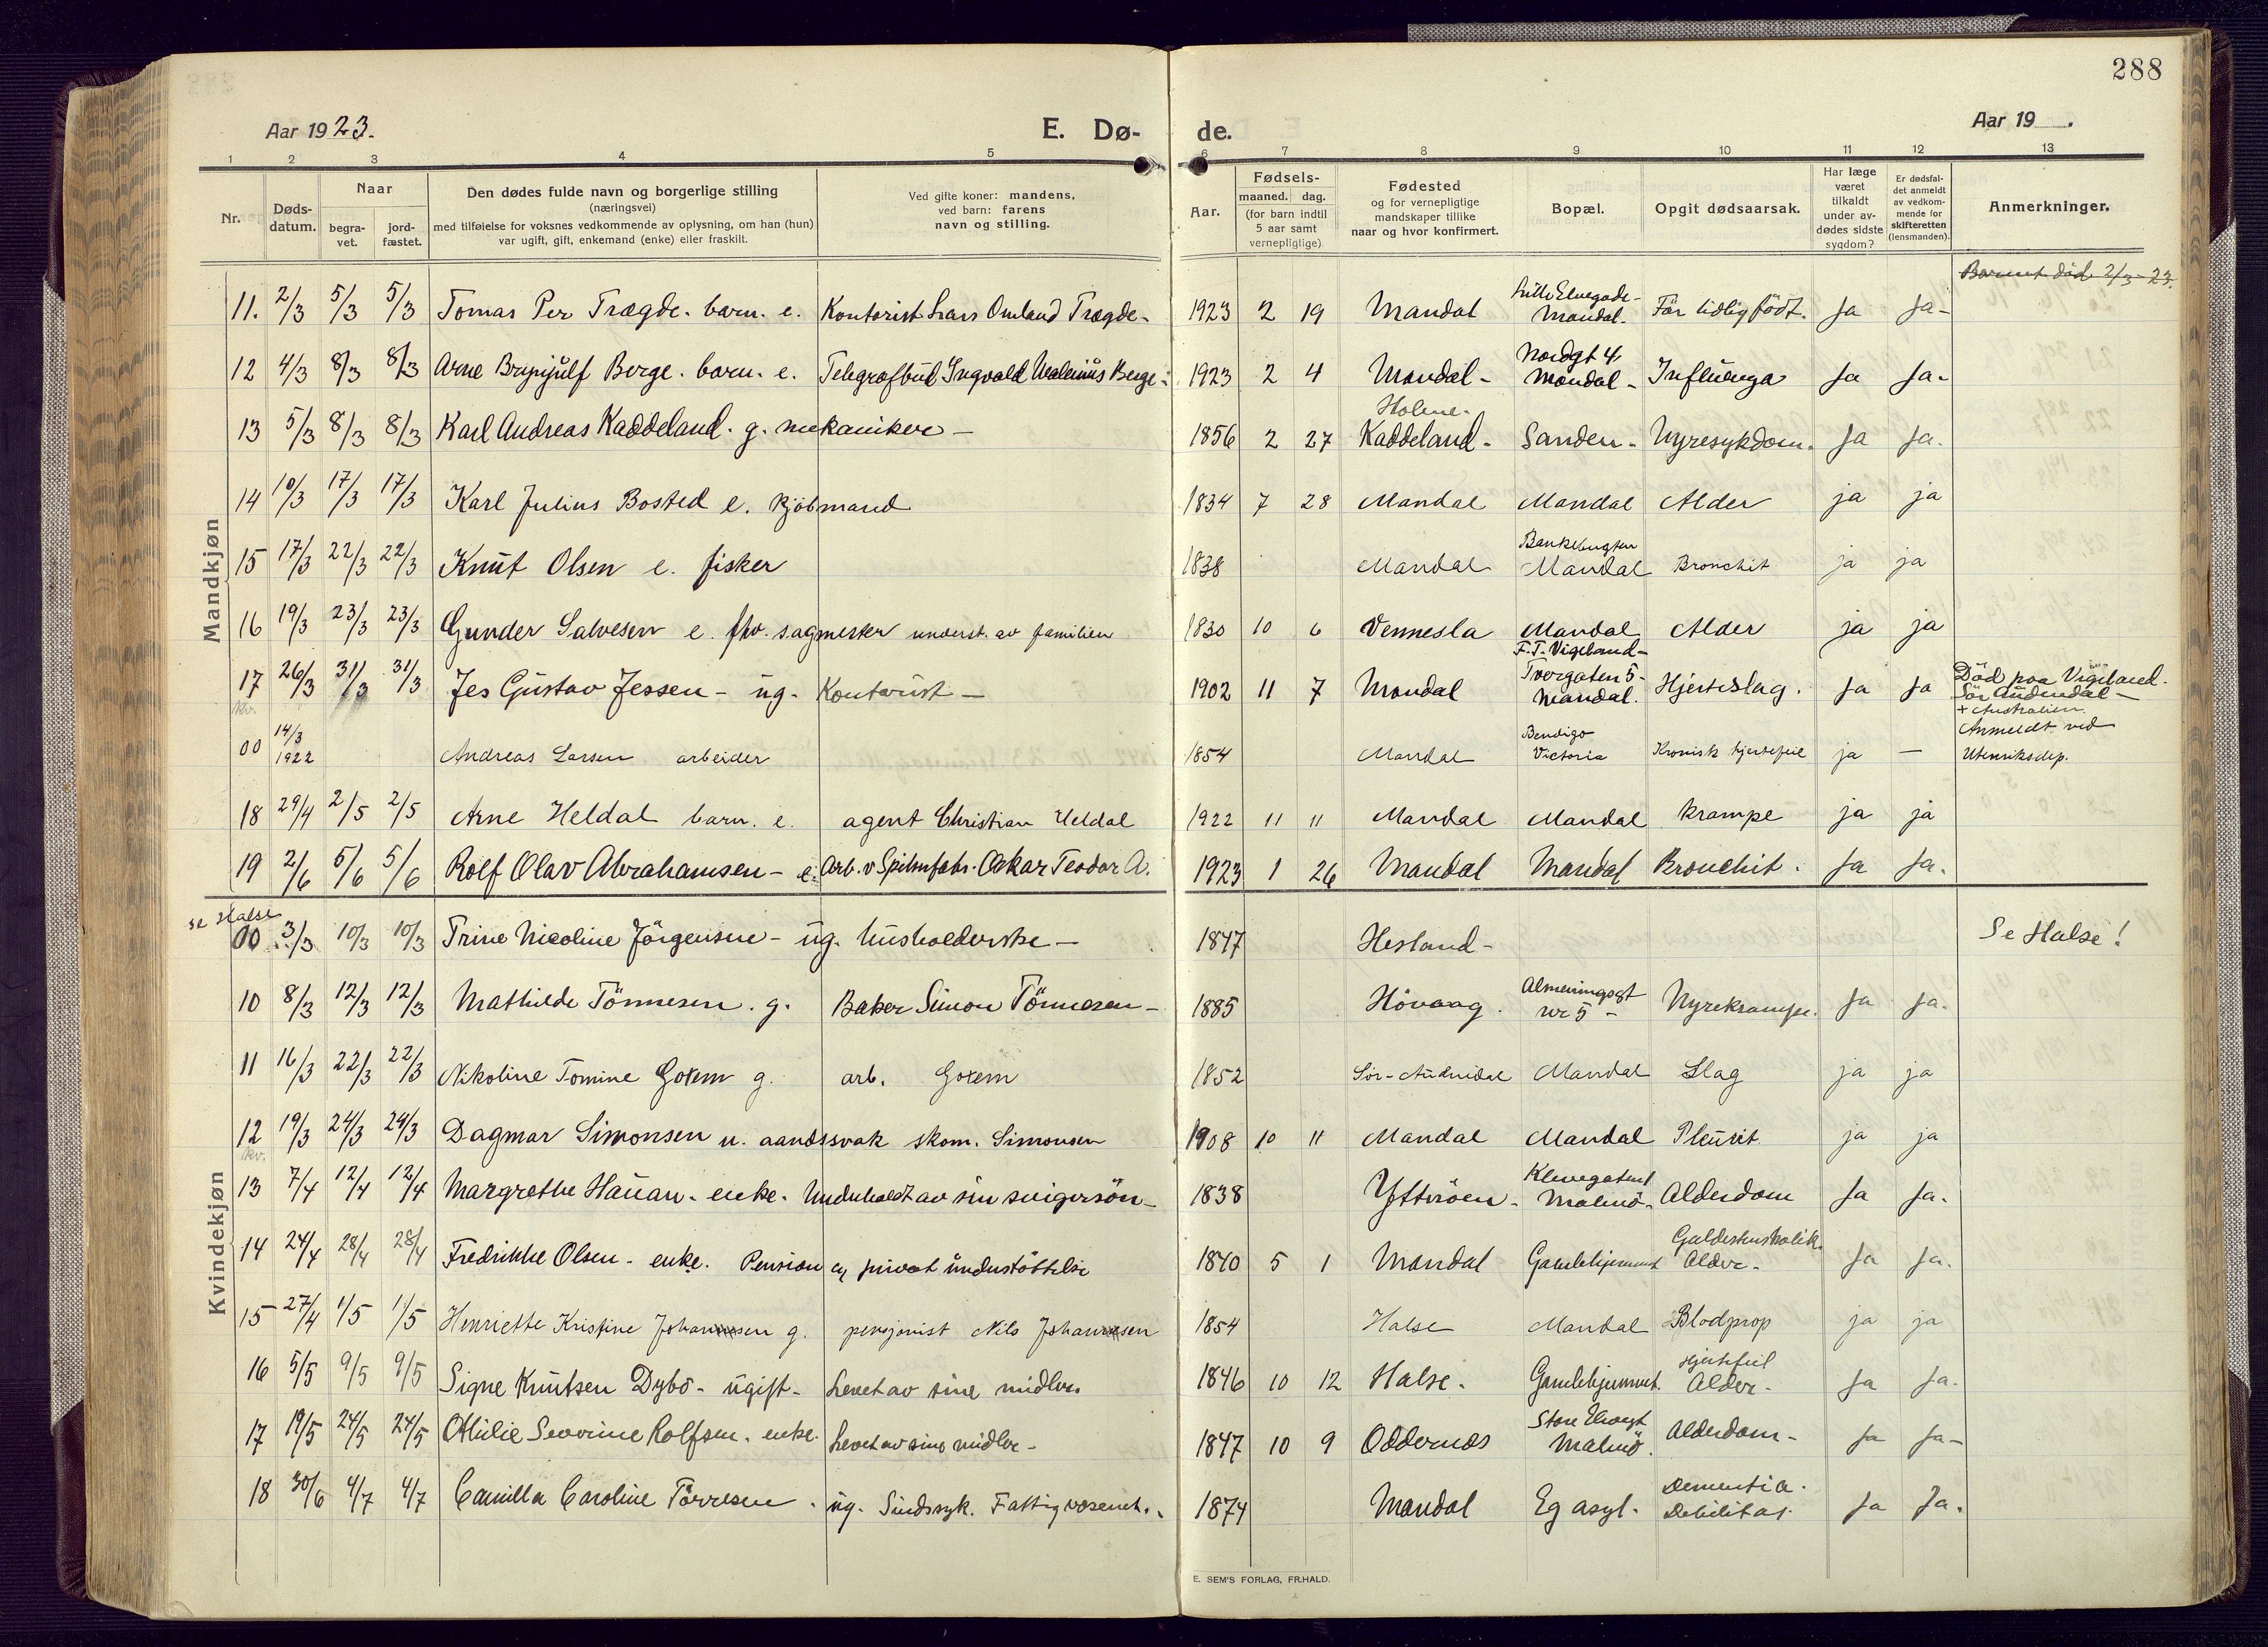 288
Aar 1923.
E. Dø-
de.
Aar 19 .
1 2 3 4 5 6 7 8 9 10 11 12 13
Nr.
Døds-
datum.
Naar
begra-
vet.
jord-
fæstet.
Den dødes fulde navn og borgerlige stilling
(næringsvei)
med tilføielse for voksnes vedkommende av oplysning, om han (hun)
var ugift, gift, enkemand (enke) eller fraskilt.
Ved gifte koner: mandens,
ved barn: farens
navn og stilling.
Aar.
Fødsels-
maaned. dag.
(for barn indtil
5 aar samt
vernepligtige)
Fødested
og for vernepligtige
mandskaper tillike
naar og hvor konfirmert.
Bopæl.
Opgit dødsaarsak.
Har læge
været
tilkaldt
under av-
dødes sidste
sygdom?
Er dødsfal-
det anmeldt
av vedkom-
mende for
skifteretten
(lensmanden).
Anmerkninger.
Mandkjøn
Barnet död 2/3-23.
11. 2/3 5/3 5/3 Tomas Per Trægde. barn. e. Kontorist Lars Omland Trægde- 1923 2 19 Mandal Lille Elvegade- Mandal. För tidlig födt. Ja Ja-
12 4/3 8/3 8/3 Arne Brynjulf Berge. barn. e. Telegrafbud Ingvald Berge- 1923 2 4 Mandal- Nordgt 4 Mandal- Influenza Ja Ja-
13 5/3 8/3 8/3 Karl Andreas Kaddeland. g. mekaniker- 1856 2 27 Holme- Kaddeland- Sanden- Nyresykdom. Ja Ja.
14 10/3 17/3 17/3 Karl Julius Bosted e. kjöbmand 1834 7 28 Mandal Mandal Alder ja ja
15 17/3 22/3 22/3 Knut Olsen e. fisker 1838 Mandal Bankebugten Mandal Bronchit ja ja
16 19/3 23/3 23/3 Gunder Salvesen e. fhv. sagmester underst. av familien 1830 10 6 Vennesla Mandal Alder ja ja
17 26/3 31/3 31/3 Jes Gustav Jessen- ug. Kontorist- 1902 11 7 Mandal F.T. Vigeland- Tvergaten 5- Mandal. Hjerteslag. Ja Ja Död paa Vigeland. Sör Audnedal-
00 14/3 1922 Andreas Larsen arbeider 1854 Mandal Bendigo Victoria Kronisk hjertefeil ja - + Australien. Anmeldt ved Utenriksdep.
18 29/4 2/5 2/5 Arne Heldal barn. e. agent Christian Heldal 1922 11 11 Mandal Mandal Krampe ja ja
19 2/6 5/6 5/6 Rolf Olav Abrahamsen- e. Arb. v Spikerfabr. Oskar Teodor A. 1923 1 26 Mandal Mandal Bronchit. Ja Ja.
Kvindekjøn
se Halse
00 3/3 10/3 10/3 Trine Nicoline Jörgensen- ug. husholderske- 1847 Hesland- Se Halse!
10 8/3 12/3 12/3 Mathilde Tönnesen. g. Baker Simon Tönnesen- 1885 Hövaag. Almeningsgt nr 5- Nyrekrampe. Ja Ja.
11 16/3 22/3 22/3 Nikoline Tomine Goxem g. arb. Goxem 1852 Sör-Audnedal Mandal Slag ja ja
12 19/3 24/3 24/3 Dagmar Simonsen u. aandssvak skom. Simonsen 1908 10 11 Mandal Mandal Pleurit ja ja
kv.
13 7/4 12/4 12/4 Margrethe Hauan- enke. Underholdt av sin svigersön- 1838 Ytteröen- Klevegaten 1 Malmö- Alderdom Ja Ja.
14 24/4 28/4 28/4 Fredrikke Olsen- enke. Pension og privat understöttelse 1840 5 1 Mandal Gamlehjemmet Galdestenskolik. Alder- Ja Ja.
15 27/4 1/5 1/5 Henriette Kristine Johansen g. pensjonist Nils Johansen 1854 Halse Mandal Blodprop ja ja
16 5/5 9/5 9/5 Signe Knutsen Dybo- ugift- Levet av sine midler. 1846 10 12 Halse. Gamlehjemmet. Hjertefeil Alder- Ja Ja.
17 19/5 24/5 24/5 Otilie Severine Rolfsen. enke. Levet av sine midler- 1847 10 9 Oddernes Store Elvegt Malmö. Alderdom- Ja Ja-
18 30/6 4/7 4/7 Camilla Caroline Törresen. ug. Sindssyk. Fattigvæsenet. 1874 Mandal Eg asyl. Dementia. Debilitas. Ja Ja.
E. SEM'S FORLAG, FR.HALD.